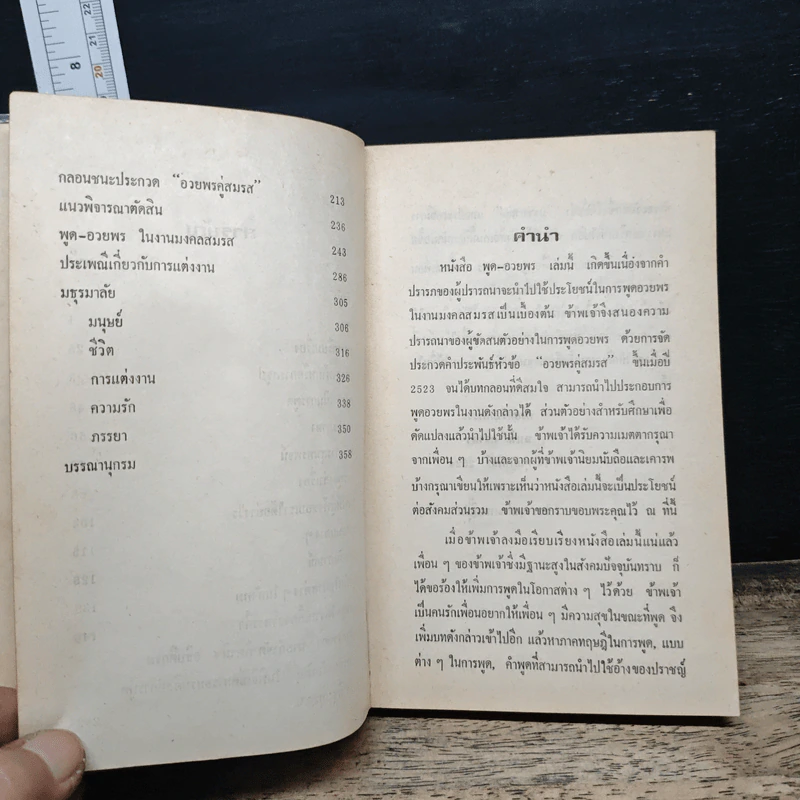 กลอนชนะประกวด "อวยพรคู่สมรส" 213
แนวพิจารณาตัดสิน 236
พูด-อวยพร ในงานมงคลสมรส 243
ประเพณีเกี่ยวกับการแต่งงาน 286
มธุรมาลัย 305
มนุษย์ 306
ชีวิต 316
การแต่งงาน 326
ความรัก 338
ภรรยา 350
บรรณานุกรม 358
คำนำ
หนังสือ พูด-อวยพร เล่มนี้ เกิดขึ้นเนื่องจากคำ
ปรารภของผู้ปรารถนาจะนำไปใช้ประโยชน์ในการพูดอวยพร
ในงานมงคลสมรสเป็นเบื้องต้น ข้าพเจ้าจึงสนองความ
ปรารถนาของผู้ขัดสนตัวอย่างในการพูดอวยพร ด้วยการจัด
ประกวดคำประพันธ์หัวข้อ "อวยพรคู่สมรส" ขึ้นเมื่อปี
2523 จนได้บทกลอนที่ดีสมใจ สามารถนำไปประกอบการ
พูดอวยพรในงานดังกล่าวได้ ส่วนตัวอย่างสำหรับศึกษาเพื่อ
ดัดแปลงแล้วนำไปใช้นั้น ข้าพเจ้าได้รับความเมตตากรุณา
จากเพื่อน ๆ บ้างและจากผู้ที่ข้าพเจ้านิยมนับถือและเคารพ
บ้างกรุณาเขียนให้เพราะเห็นว่าหนังสือเล่มนี้จะเป็นประโยชน์
ต่อสังคมส่วนรวม ข้าพเจ้าขอกราบขอบพระคุณไว้ ณ ที่นี้
เมื่อข้าพเจ้าลงมือเรียบเรียงหนังสือเล่มนี้แน่แล้ว
เพื่อน ๆ ของข้าพเจ้าซึ่งมีฐานะสูงในสังคมปัจจุบันทราบ ก็
ได้ขอร้องให้เพิ่มการพูดในโอกาสต่าง ๆ ไว้ด้วย ข้าพเจ้า
เป็นคนรักเพื่อนอยากให้เพื่อน ๆ มีความสุขในขณะที่พูด จึง
เพิ่มบทดังกล่าวเข้าไปอีก แล้วหาภาคทฤษฎีในการพูด, แบบ
ต่าง ๆ ในการพูด, คำพูดที่สามารถนำไปใช้อ้างของปราชญ์
8
20
21
22